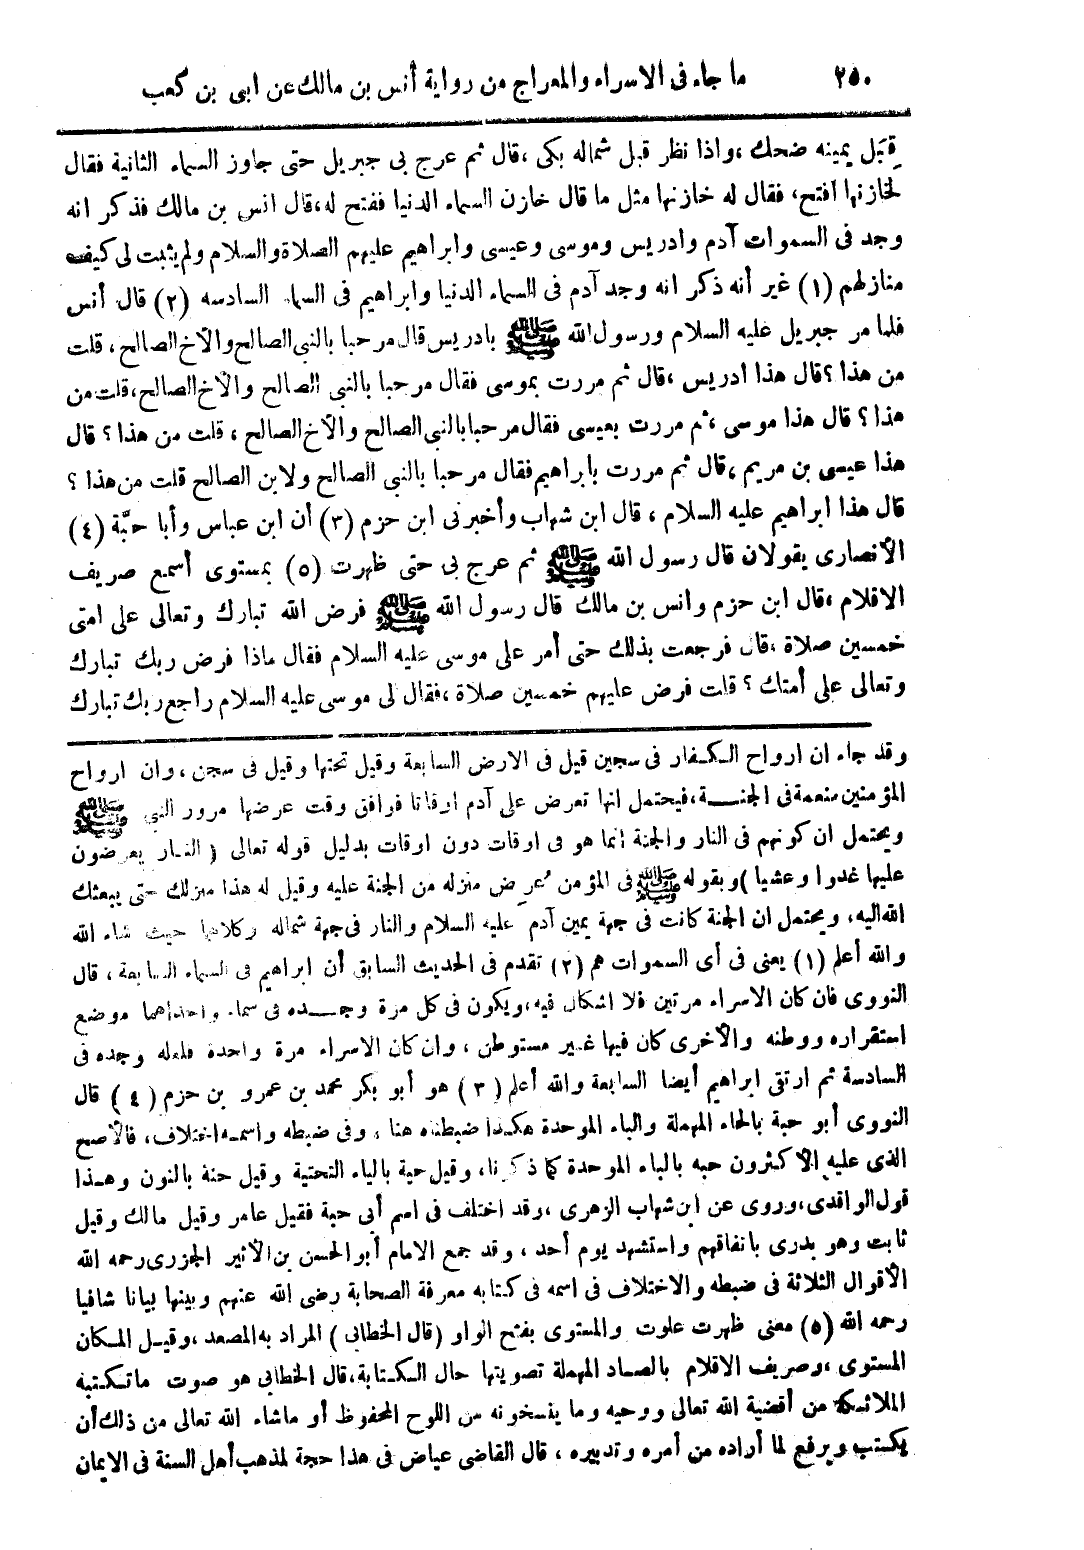 ٢٥٠ ما جاء فى الاسراء والمعراج من رواية أنس بن مالك عن ابى بن كعب
قِبَل يمينه ضحك، واذا نظر قبل شماله بكى، قال ثم عرج بى جبريل حتى جاوز السماء الثانية فقال
لخازنها افتح، فقال له خازنها مثل ما قال خازن السماء الدنيا ففتح له، قال انس بن مالك فذكر انه
وجد فى السموات آدم وادريس وموسى وعيسى وابراهيم عليهم الصلاة والسلام ولم يثبت لى كيف
منازلهم (١) غير أنه ذكر انه وجد آدم فى السماء الدنيا وابراهيم فى السماء السادسه (٢) قال أنس
فلما مر جبريل عليه السلام ورسول الله ﷺ بادريس قال مرحبا بالنبى الصالح والأخ الصالح، قلت
من هذا؟ قال هذا ادريس، قال ثم مررت بموسى فقال مرحبا بالنبى الصالح والأخ الصالح، قلت من
هذا؟ قال هذا موسى، ثم مررت بعيسى فقال مرحبا بالنبى الصالح والأخ الصالح، قلت من هذا؟ قال
هذا عيسى بن مريم، قال ثم مررت بابراهيم فقال مرحبا بالنبى الصالح ولابن الصالح قلت من هذا؟
قال هذا ابراهيم عليه السلام، قال ابن شهاب وأخبرنى ابن حزم (٣) أن ابن عباس وأبا حبَّة (٤)
الأنصارى يقولان قال رسول الله ﷺ ثم عرج بى حتى ظهرت (٥) بمستوى أسمع صريف
الاقلام، قال ابن حزم وانس بن مالك قال رسول الله ﷺ فرض الله تبارك وتعالى على امتى
خمسين صلاة، قال فرجعت بذلك حتى أمر على موسى عليه السلام فقال ماذا فرض ربك تبارك
وتعالى على أمتك؟ قلت فرض عليهم خمسين صلاة، فقال لى موسى عليه السلام راجع ربك تبارك
وقد جاء ان ارواح الكفار فى سجين قيل فى الارض السابعة وقيل تحتها وقيل فى سجن، وان ارواح
المؤمنين منعمة فى الجنة، فيحتمل انها تعرض على آدم اوقاتا فوافق وقت عرضها مرور النبى ﷺ
ويحتمل ان كونهم فى النار والجنة انما هو فى اوقات دون اوقات بدليل قوله تعالى (النار يعرضون
عليها غدوا وعشيا) وبقوله ﷺ فى المؤمن عُرِض منزله من الجنة عليه وقيل له هذا منزلك حتى يبعثك
الله اليه، ويحتمل ان الجنة كانت فى جهة يمين آدم عليه السلام والنار فى جهة شماله وكلاهما حيث شاء الله
والله أعلم (١) يعنى فى أى السموات هم (٢) تقدم فى الحديث السابق أن ابراهيم فى السماء السابعة، قال
النووى فان كان الاسراء مرتين فلا اشكال فيه، ويكون فى كل مرة وجده فى سماء واحداهما موضع
استقراره ووطنه والأخرى كان فيها غير مستوطن، وان كان الاسراء مرة واحدة فلعله وجده فى
السادسة ثم ارتقى ابراهيم أيضا السابعة والله أعلم (٣) هو أبو بكر محمد بن عمرو بن حزم (٤) قال
النووى أبو حبة بالحاء المهملة والباء الموحدة هكذا ضبطناه هنا، وفى ضبطه واسمه اختلاف، فالأصح
الذى عليه الأكثرون حبه بالباء الموحدة كما ذكرنا، وقيل حية بالياء التحتية وقيل حنة بالنون وهذا
قول الواقدى، وروى عن ابن شهاب الزهرى، وقد اختلف فى اسم أبى حبة فقيل عامر وقيل مالك وقيل
ثابت وهو بدرى باتفاقهم واستشهد يوم أحد، وقد جمع الامام أبو الحسن بن الأثير الجزرى رحمه الله
الأقوال الثلاثة فى ضبطه والاختلاف فى اسمه فى كتابه معرفة الصحابة رضى الله عنهم وبينها بيانا شافيا
رحمه الله (٥) معنى ظهرت علوت والمستوى بفتح الواو (قال الخطابى) المراد به المصعد، وقيل المكان
المستوى، وصريف الاقلام بالصاد المهملة تصويتها حال الكتابة، قال الخطابى هو صوت ما تكتبه
الملائكة من أقضية الله تعالى ووحيه وما ينسخونه من اللوح المحفوظ أو ما شاء الله تعالى من ذلك أن
يكتب ويرفع لما أراده من أمره وتدبيره، قال القاضى عياض فى هذا حجة لمذهب أهل السنة فى الايمان